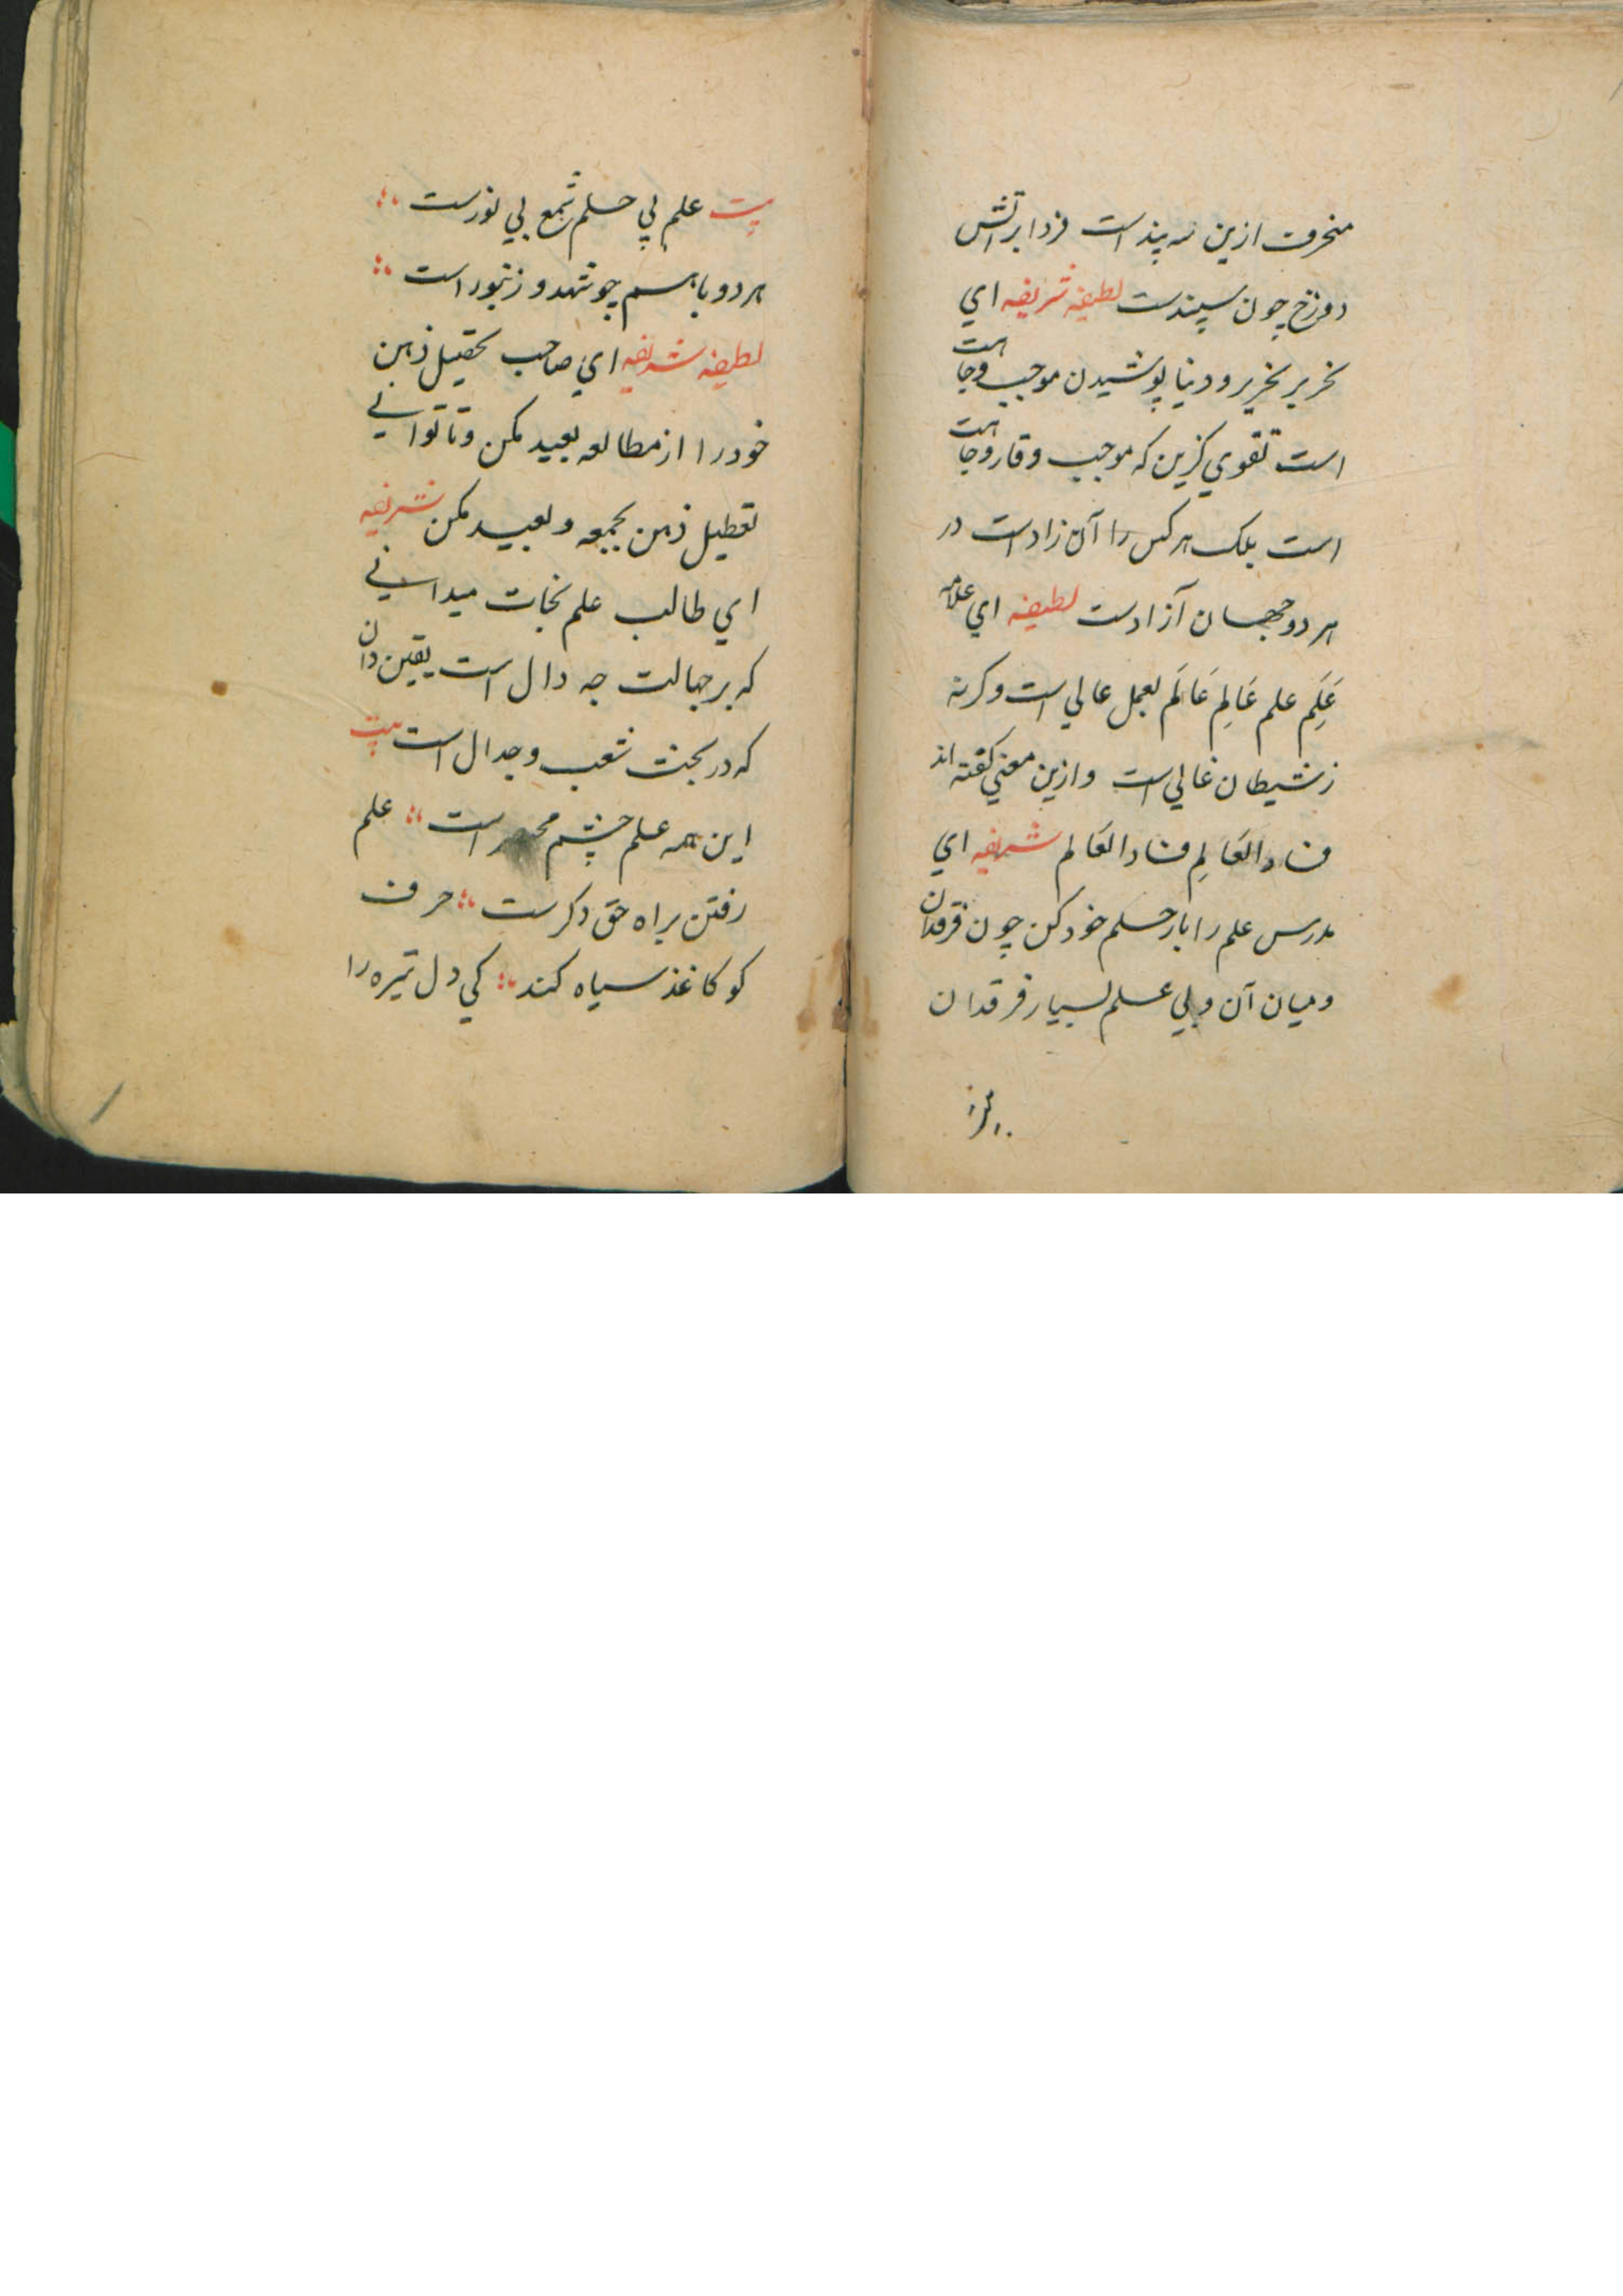 منحرف ازین سه پند است فردا بر آتش
دوزخ چون سپندست لطیفه شریفه ای
نحریر بحریر و دیبا پوشیدن موجب وجاهت
است تقوی گزین که موجب وقار وجاهت
است بلک هر کس را آن زاد است در
هر دو جهان آزادست لطیفه ای علامه
عَلَم علم عَالِم عَالَم بعمل عالی است وکرنه
ز شیطان غالی است و ازین معنی کفته اند
فساد العَالِم فساد العَالم شریفه ای
مدرس علم را با رحلم خود کن چون فرقدان
و میان آن و بی علم بسیار فرقدان
بیت علم بی حلم شمع بی نورست
هر دو باهم چو شهد و زنبور است
لطیفه شریفه ای صاحب تحصیل ذهن
خود را از مطالعه بعید مکن و تا توانی
تعطیل ذهن بجمعه و بعید مکن شریفه
ای طالب علم نجات میدانی
که بر جهالت چه دال است یقین دان
که در بحث شعب و جدال است بیت
این همه علم جسم مختصر است علم
رفتن براه حق دکرست حرف
کو کاغذ سیاه کند کی دل تیره را